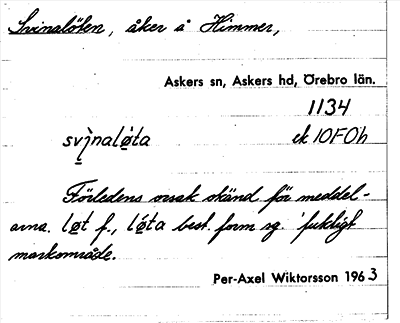 Svinalöten, åker å Himmer,
Askers sn, Askers hd, Örebro län.
1134
svi̠nalǿta ek 10F0h
Förledens orsak okänd för meddel-
arna. løt f., lǿta best. form sg. 'fuktigt
markområde.
Per-Axel Wiktorsson 1963